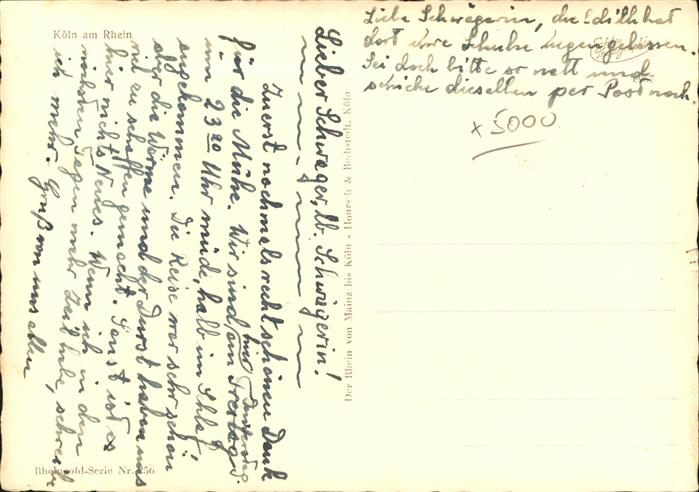 Köln am Rhein
Lieber Schwager, lb. Schwägerin!
Zuerst nochmals recht schönen Dank
für die Mühe. Wir sind am Freitag
um 23 Uhr müde, halb im Schlaf,
hier
angekommen. Die Reise war sehr schön
aber die Wärme und der Durst haben uns
viel zu schaffen gemacht. Sonst ist es
hier nichts Neues. Wenn ich in den
nächsten Tagen mehr Zeit habe, schreibe
ich mehr. Gruß von uns allen
Liebe Schwägerin, die hat
dort ihre Schuhe liegen gelassen.
Sei doch bitte so nett und
schicke dieselben per Post nach.
x 5000
Der Rhein von Mainz bis Köln - Hoursch & Bechstedt, Köln
Rheingold-Serie Nr. 256